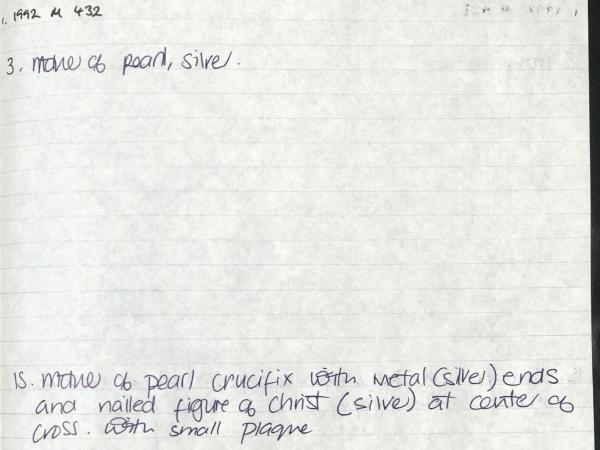 1. 1992 M 432
3. mother of pearl, silver.
15. mother of pearl crucifix with metal (silver) ends
and nailed figure of Christ (silver) at center of
cross. with small plaque